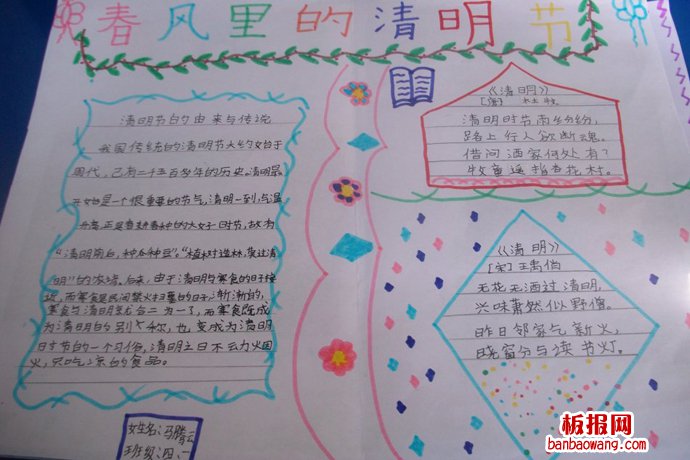 春风里的清明节
清明节的由来与传说
我国传统的清明节大约始于
周代，已有二千五百多年的历史。清明最
开始是一个很重要的节气，清明一到，气温
升高，正是春耕春种的大好时节，故有
“清明前后，种瓜种豆”。“植树造林，莫过清
明”的农谚。后来，由于清明与寒食的日子接
近，而寒食是民间禁火扫墓的日子，渐渐的，
寒食与清明就合二为一了，而寒食既成
为清明的别称，也变成为清明
时节的一个习俗，清明之日不动烟
火，只吃凉的食品。
姓名：马腾云
班级：四、一
《清明》
[唐] 杜牧
清明时节雨纷纷，
路上行人欲断魂。
借问酒家何处有？
牧童遥指杏花村。
《清明》
[宋]王禹偁
无花无酒过清明，
兴味萧然似野僧。
昨日邻家乞新火，
晓窗分与读书灯。
板报网
banbaowang.com